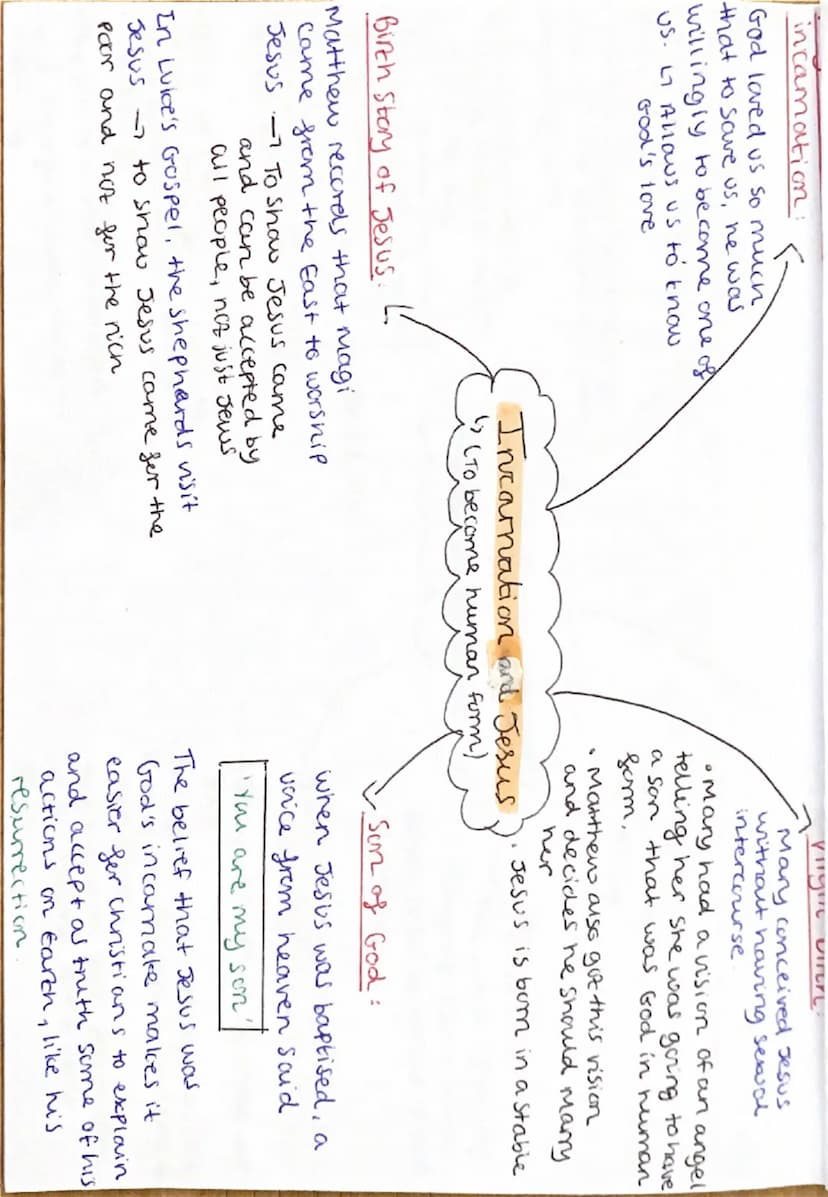 incarnation:
God loved us so much
that to save us, he was
willingly to become one of
us. ↳ Allows us to know
God's love
Virgin Birth:
Mary conceived Jesus
without having sexual
intercourse.
• Mary had a vision of an angel
telling her she was going to have
a son that was God in human
form.
• Matthew also got this vision
and decides he should marry
her
• Jesus is born in a stable
Incarnation and Jesus
↳ (To become human form)
Birth Story of Jesus:
Matthew records that magi
came from the East to worship
Jesus → To show Jesus came
and can be accepted by
all people, not just Jews
In Luke's Gospel, the shepherds visit
Jesus → to show Jesus came for the
poor and not for the rich
Son of God:
when Jesus was baptised, a
voice from heaven said
'You are my son'
The belief that Jesus was
God's incarnate makes it
easier for Christians to explain
and accept as truth some of his
actions on Earth, like his
resurrection.